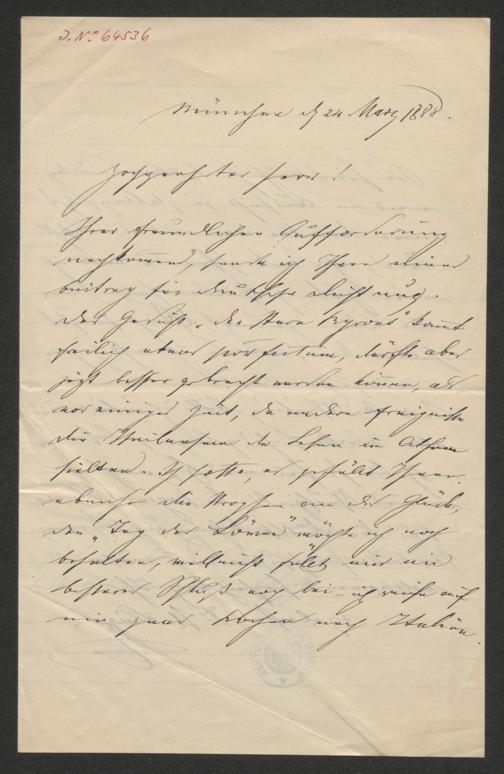 J. N.° 64536
München d 24 März 1888.
Hochgeehrter Herr!
Ihrer freundlichen Aufforderung
nachkommend, sende ich Ihnen einen
Beitrag für deutsche Dichtung.
Das Gedicht „der Byrons" kommt
freilich etwas post festum, dürfte aber
jetzt besser gebracht werden können, als
vor einiger Zeit, da andere Ereignisse
die Theilnahme der Leser in Athem
hielten. Ich hoffe, es gefällt Ihnen
ebenso die Strophen an das Glück,
den „Tag der" möchte ich noch
behalten, vielleicht fällt mir ein
besserer Schluß noch bei - ich reise auf
ein paar Wochen nach Italien.